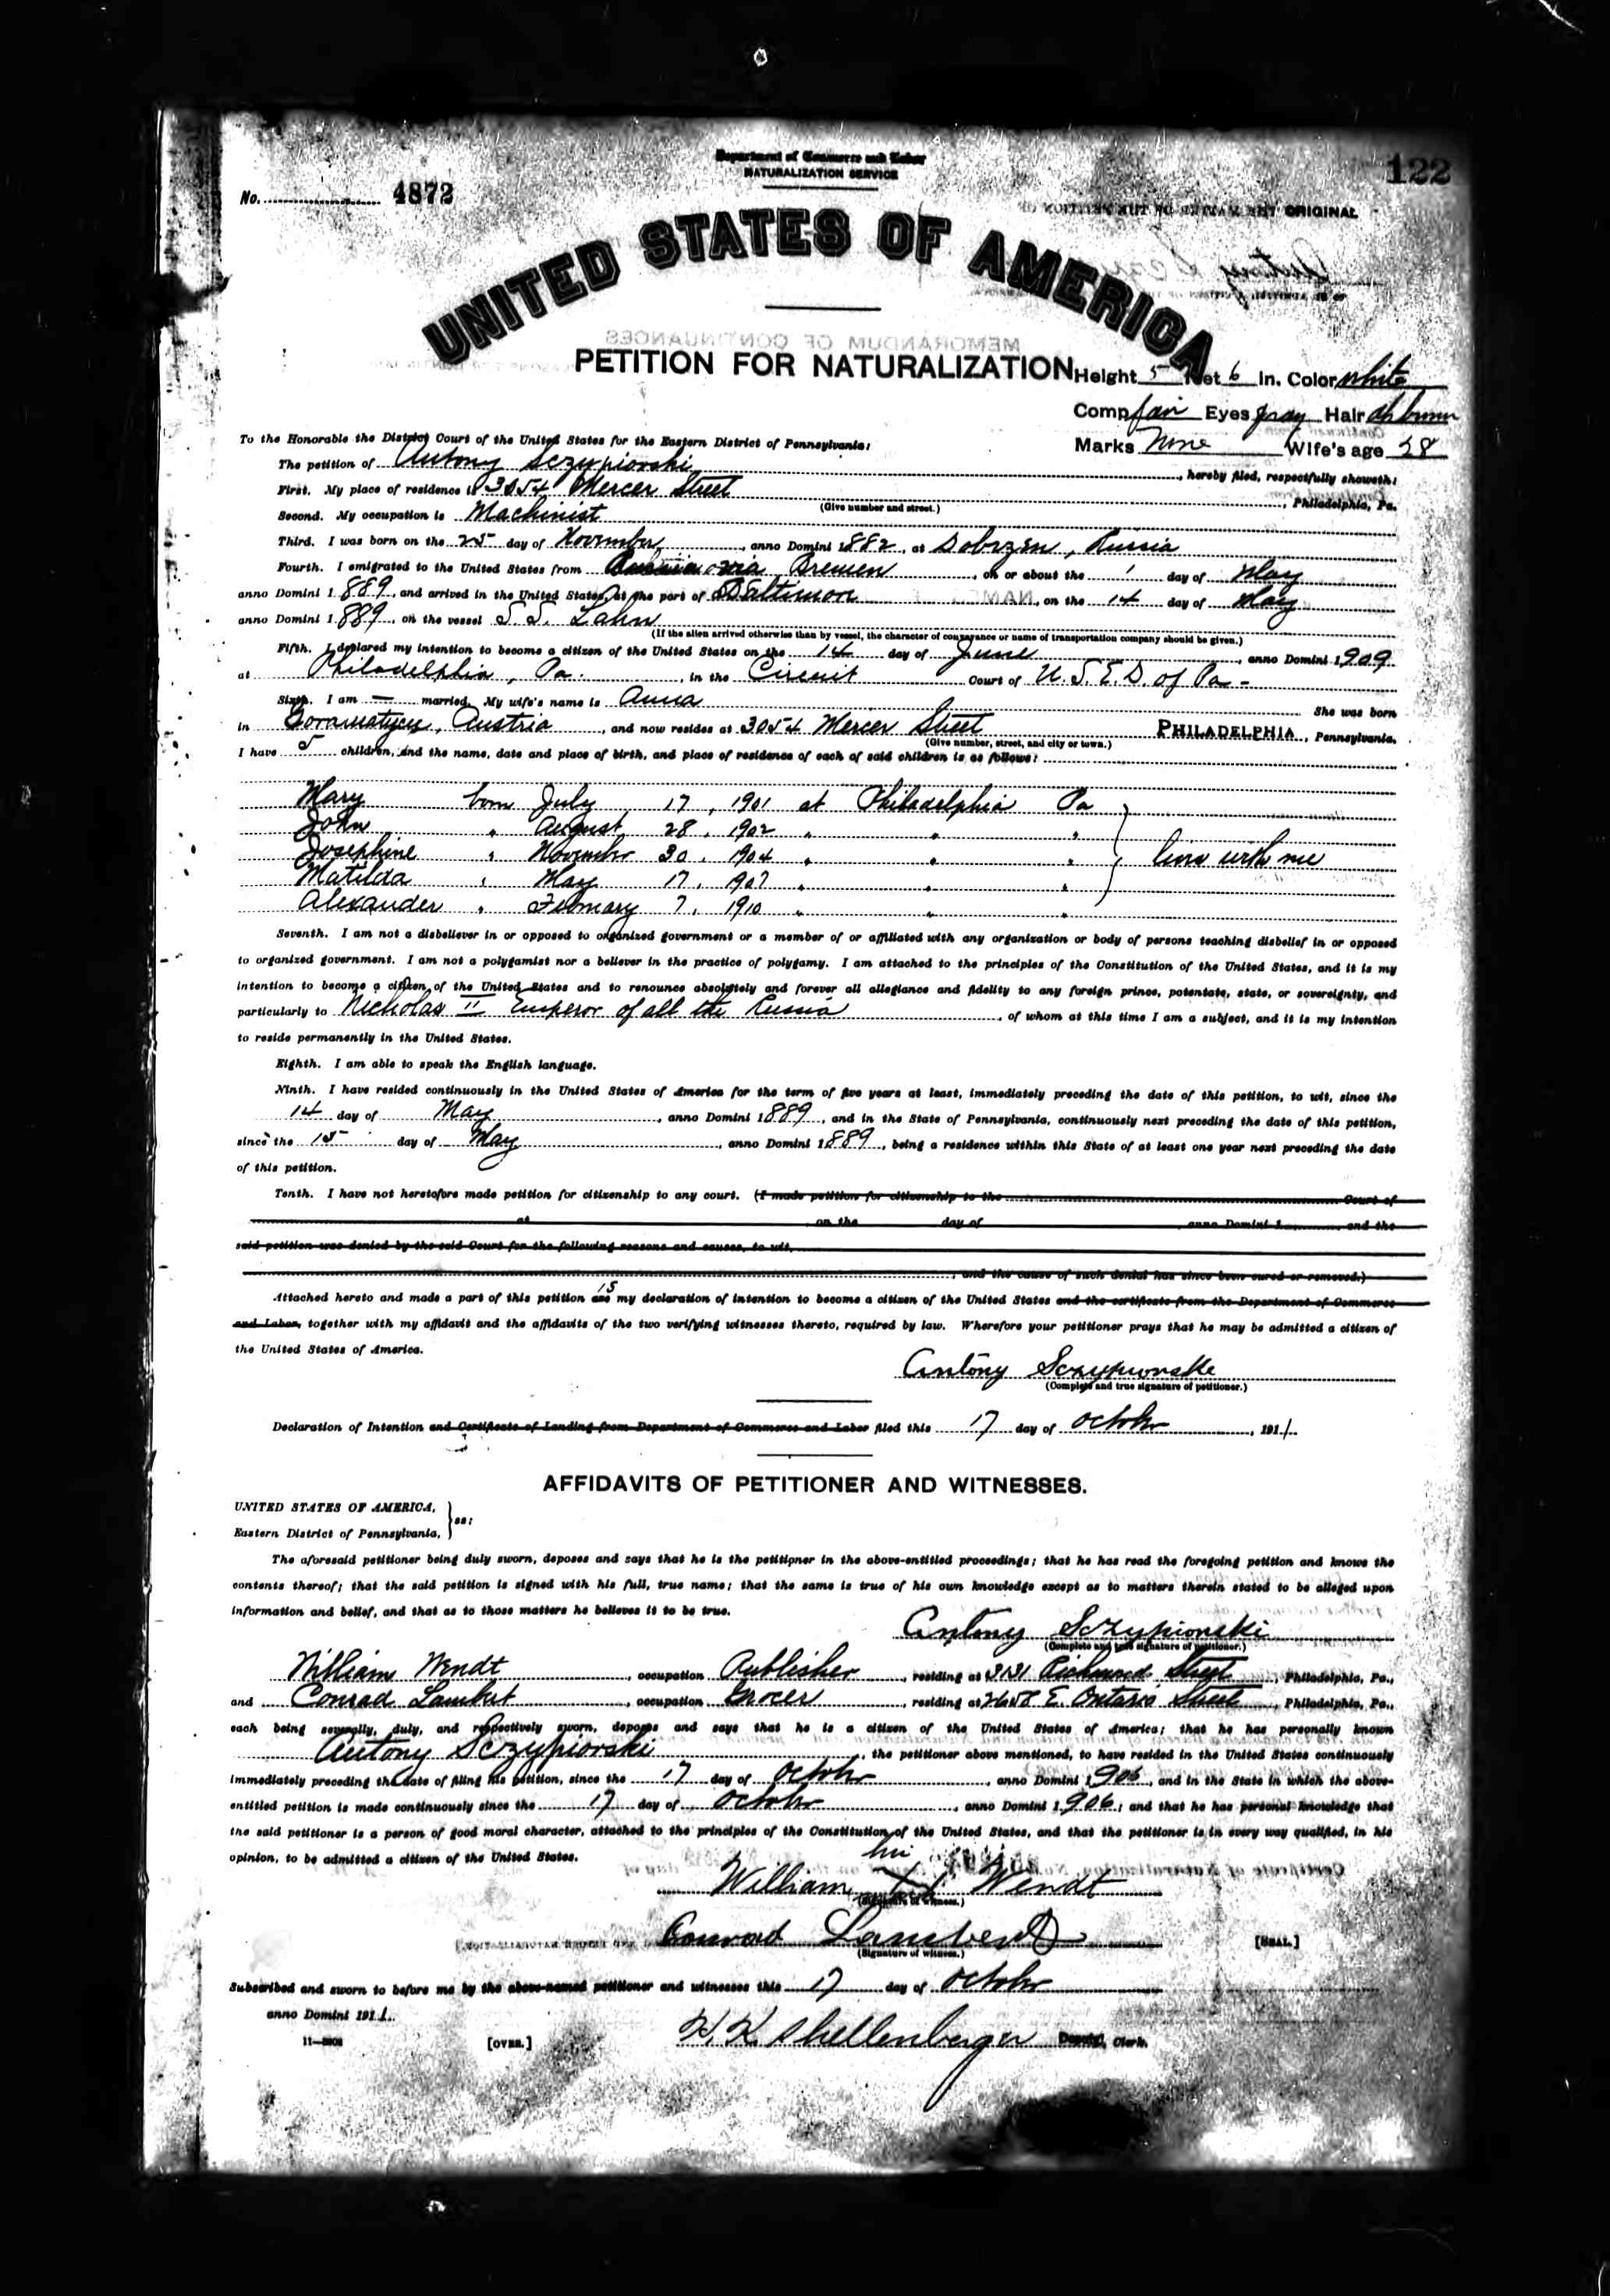 Department of Commerce and Labor
NATURALIZATION SERVICE
122
No. 4872
ORIGINAL
UNITED STATES OF AMERICA
MEMORANDUM OF CONTINUANCES
PETITION FOR NATURALIZATION Height 5 feet 6 in. Color white
Comp fair Eyes gray Hair dk brown
To the Honorable the District Court of the United States for the Eastern District of Pennsylvania: Marks None Wife's age 28
The petition of Antony Sczypiorski, hereby filed, respectfully showeth:
First. My place of residence is 3054 Mercer Street, Philadelphia, Pa.
(Give number and street.)
Second. My occupation is Machinist
Third. I was born on the 25 day of November, anno Domini 1882, at Dobrzen, Russia
Fourth. I emigrated to the United States from via Bremen, on or about the 1 day of May
anno Domini 1889, and arrived in the United States, at the port of Baltimore, on the 14 day of May
anno Domini 1889, on the vessel S S. Lahn
(If the alien arrived otherwise than by vessel, the character of conveyance or name of transportation company should be given.)
Fifth. I declared my intention to become a citizen of the United States on the 14 day of June, anno Domini 1909
at Philadelphia, Pa., in the Circuit Court of U. S. E. D. of Pa -
Sixth. I am — married. My wife's name is Anna She was born
in Austria, and now resides at 3054 Mercer Street PHILADELPHIA, Pennsylvania.
(Give number, street, and city or town.)
I have 5 children, and the name, date and place of birth, and place of residence of each of said children is as follows:
Mary born July 17, 1901 at Philadelphia Pa
John " August 28, 1902 " " "
Josephine " November 30, 1904 " " " } live with me
Matilda " May 17, 1907 " " "
Alexander " February 7, 1910 " " "
Seventh. I am not a disbeliever in or opposed to organized government or a member of or affiliated with any organization or body of persons teaching disbelief in or opposed
to organized government. I am not a polygamist nor a believer in the practice of polygamy. I am attached to the principles of the Constitution of the United States, and it is my
intention to become a citizen of the United States and to renounce absolutely and forever all allegiance and fidelity to any foreign prince, potentate, state, or sovereignty, and
particularly to Nicholas II Emperor of all the Russia, of whom at this time I am a subject, and it is my intention
to reside permanently in the United States.
Eighth. I am able to speak the English language.
Ninth. I have resided continuously in the United States of America for the term of five years at least, immediately preceding the date of this petition, to wit, since the
14 day of May, anno Domini 1889, and in the State of Pennsylvania, continuously next preceding the date of this petition,
since the 15 day of May, anno Domini 1889, being a residence within this State of at least one year next preceding the date
of this petition.
Tenth. I have not heretofore made petition for citizenship to any court. (I made petition for citizenship to the Court of
at on the day of anno Domini 1 and the
said petition was denied by the said Court for the following reasons and causes, to wit,
, and the cause of such denial has since been cured or removed.)
Attached hereto and made a part of this petition are is my declaration of intention to become a citizen of the United States and the certificate from the Department of Commerce
and Labor, together with my affidavit and the affidavits of the two verifying witnesses thereto, required by law. Wherefore your petitioner prays that he may be admitted a citizen of
the United States of America.
Antony Sczypiorski
(Complete and true signature of petitioner.)
Declaration of Intention and Certificate of Landing from Department of Commerce and Labor filed this 17 day of October, 1911.
AFFIDAVITS OF PETITIONER AND WITNESSES.
UNITED STATES OF AMERICA, } ss:
Eastern District of Pennsylvania,
The aforesaid petitioner being duly sworn, deposes and says that he is the petitioner in the above-entitled proceedings; that he has read the foregoing petition and knows the
contents thereof; that the said petition is signed with his full, true name; that the same is true of his own knowledge except as to matters therein stated to be alleged upon
information and belief, and that as to those matters he believes it to be true.
Antony Sczypiorski
(Complete and true signature of petitioner.)
William Wendt, occupation Publisher, residing at Richmond Street, Philadelphia, Pa.,
and Conrad Lambert, occupation Grocer, residing at E. Ontario Street, Philadelphia, Pa.,
each being severally, duly, and respectively sworn, deposes and says that he is a citizen of the United States of America; that he has personally known
Antony Sczypiorski, the petitioner above mentioned, to have resided in the United States continuously
immediately preceding the date of filing his petition, since the 17 day of October, anno Domini 1906, and in the State in which the above-
entitled petition is made continuously since the 17 day of October, anno Domini 1906; and that he has personal knowledge that
the said petitioner is a person of good moral character, attached to the principles of the Constitution of the United States, and that the petitioner is in every way qualified, in his
opinion, to be admitted a citizen of the United States.
William Wendt
(Signature of witness.)
Conrad Lambert
(Signature of witness.)
[SEAL.]
Subscribed and sworn to before me by the above-named petitioner and witnesses this 17 day of October
anno Domini 1911.
11—2808 [OVER.] H. H. Shellenberger Deputy, Clerk.